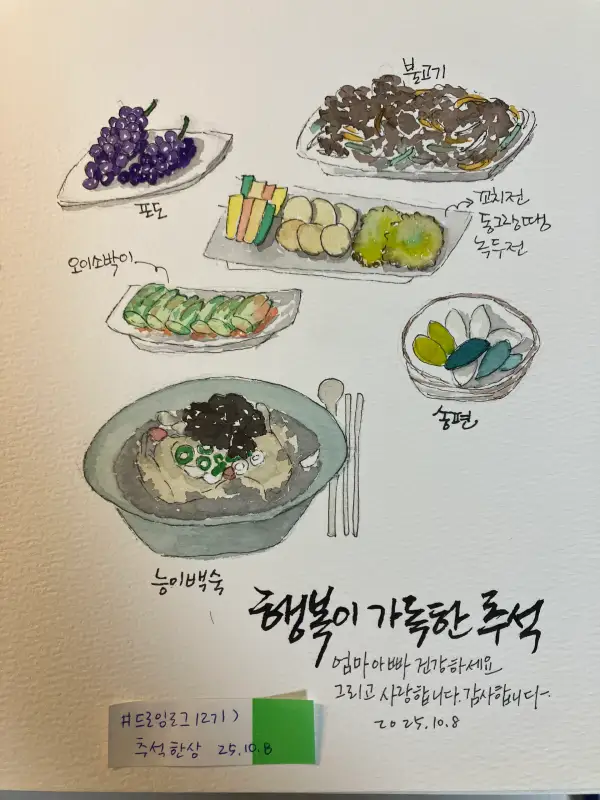 불고기
포도
꼬치전
동그랑땡
녹두전
오이소박이
송편
능이백숙
행복이 가득한 추석
엄마아빠 건강하세요
그리고 사랑합니다. 감사합니다~.
2025.10.8
#드로잉로그(2기)
추석한상 25.10.8